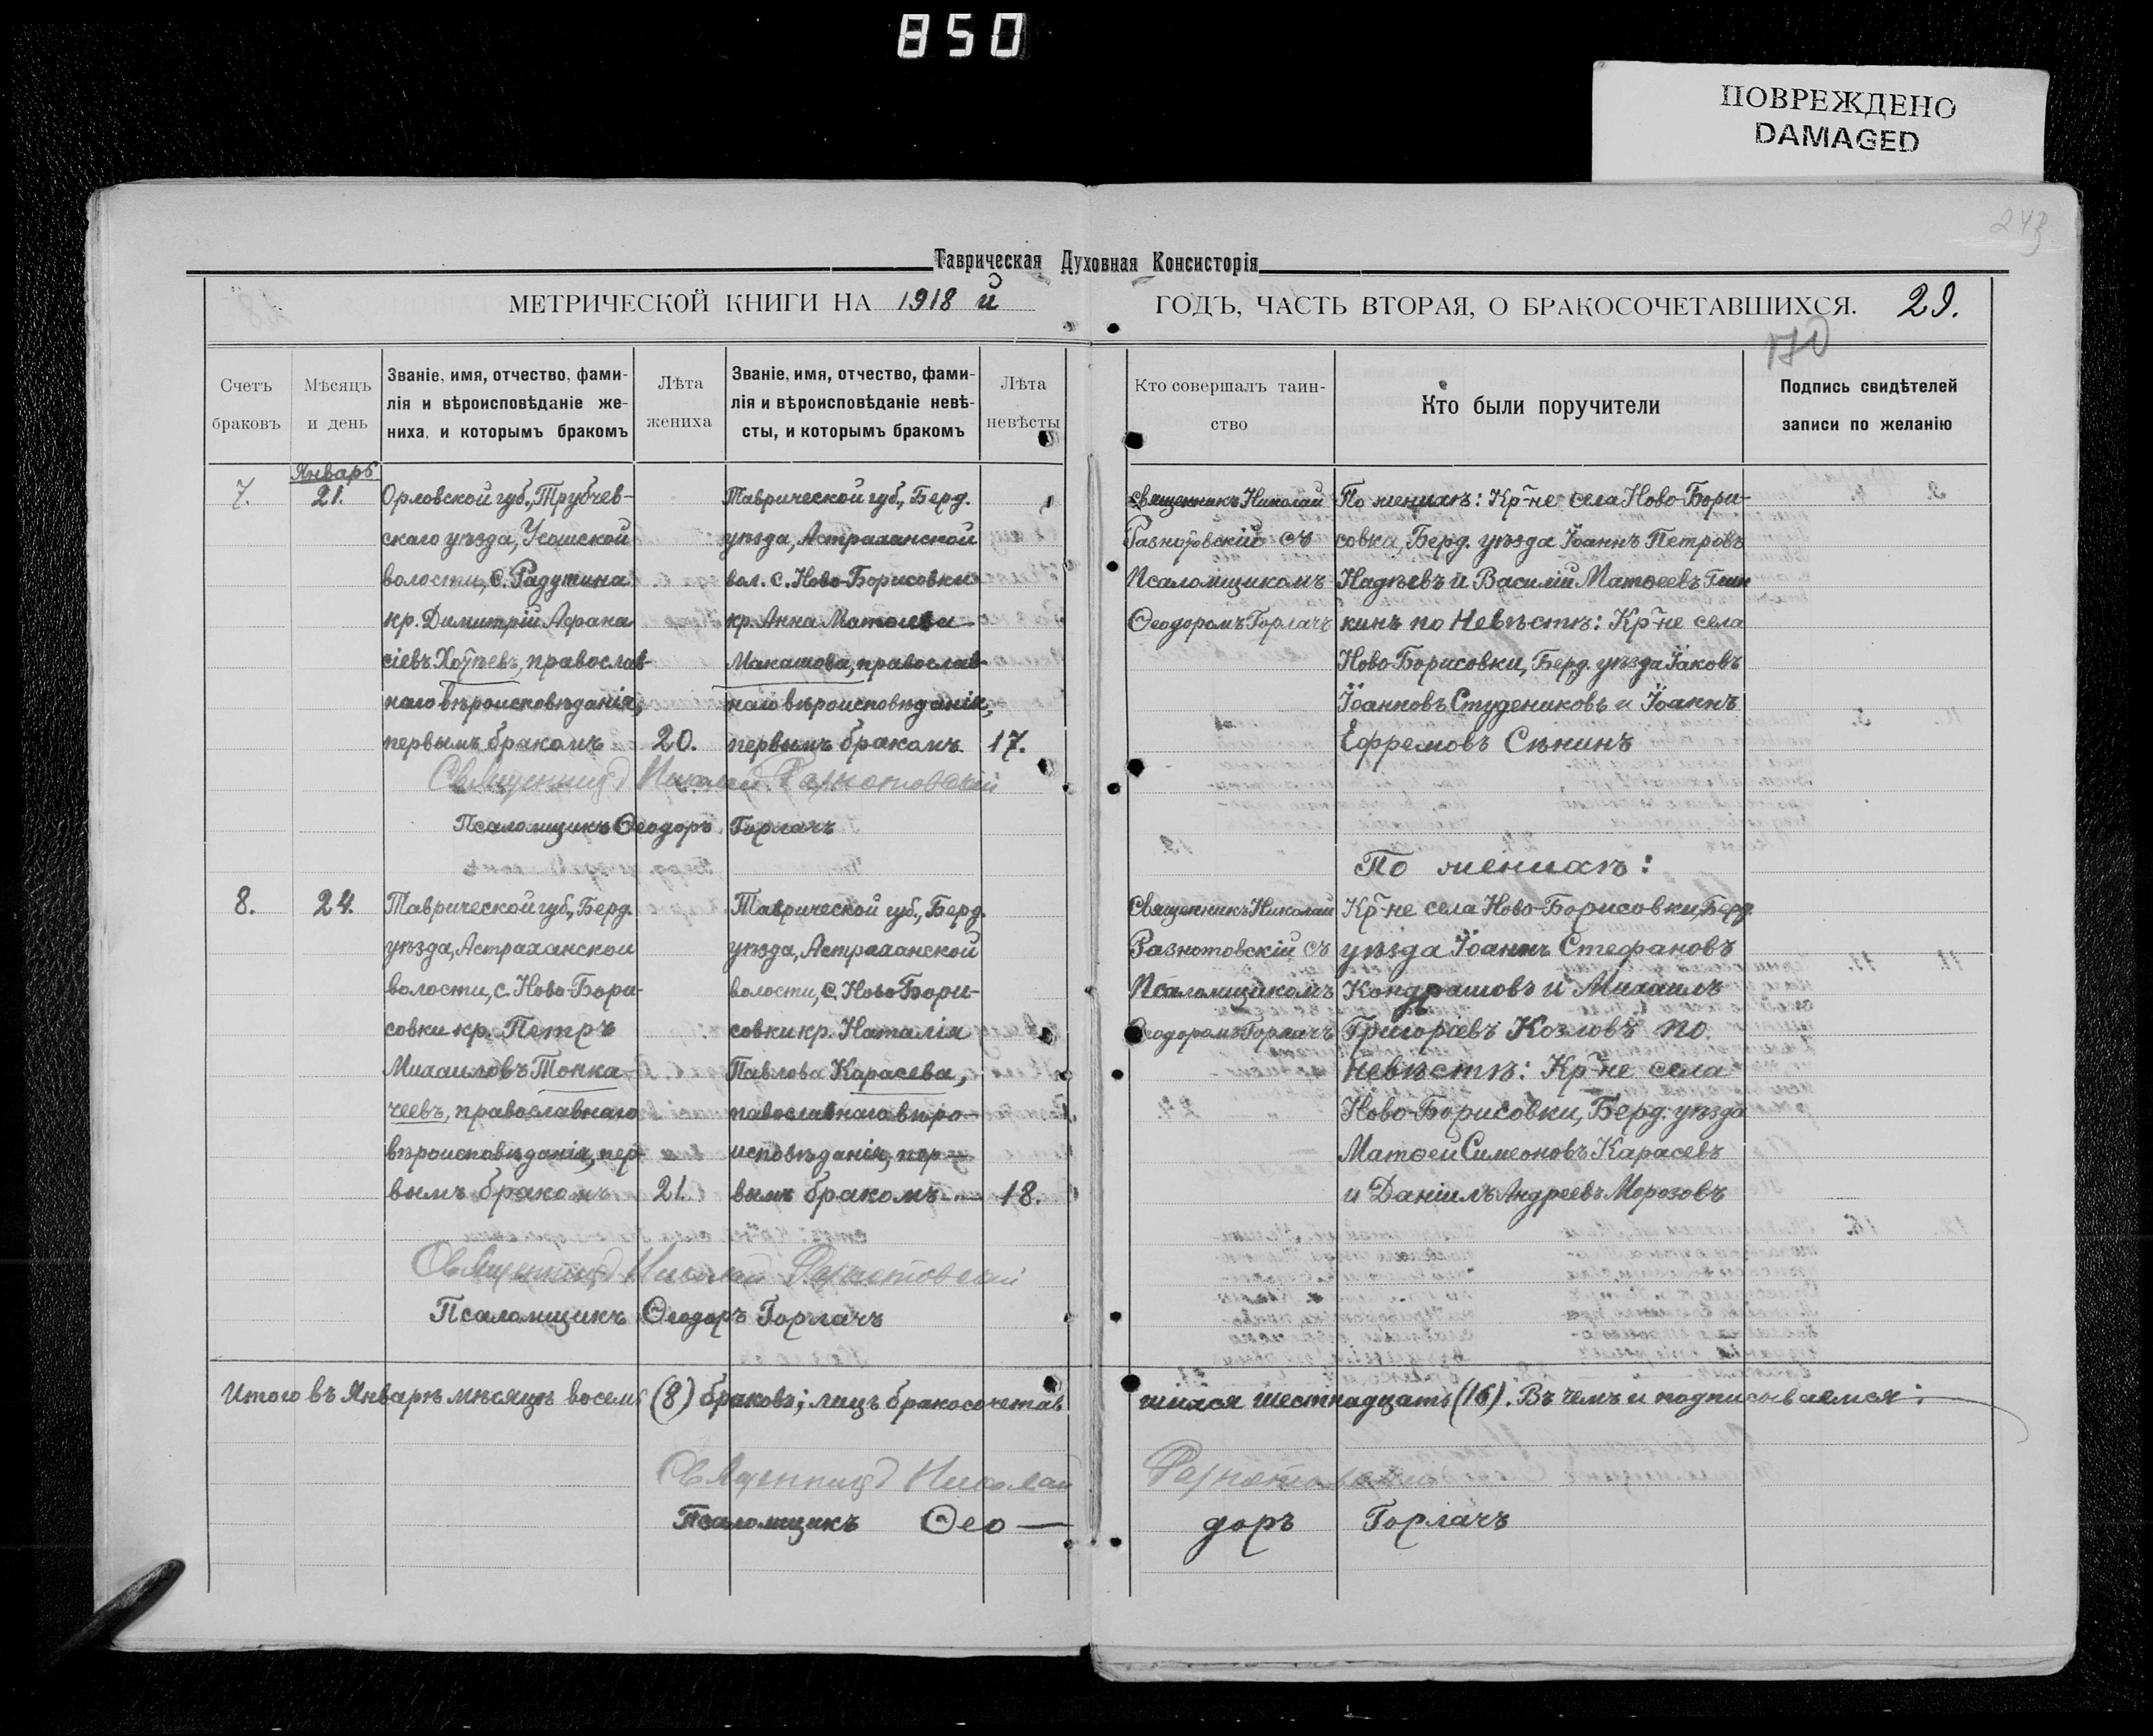 850
ПОВРЕЖДЕНО
DAMAGED
243
Таврическая Духовная Консисторія
МЕТРИЧЕСКОЙ КНИГИ НА 1918 й ГОДЪ, ЧАСТЬ ВТОРАЯ, О БРАКОСОЧЕТАВШИХСЯ. 29.
Счетъ
браковъ
Мѣсяцъ
и день
Званіе, имя, отчество, фами-
лія и вѣроисповѣданіе же-
ниха, и которымъ бракомъ
Лѣта
жениха
Званіе, имя, отчество, фами-
лія и вѣроисповѣданіе невѣ-
сты, и которымъ бракомъ
Лѣта
невѣсты
Кто совершалъ таин-
ство
Кто были поручители
Подпись свидѣтелей
записи по желанію
7.
Январь
21.
Орловской губ., Трубчев-
скаго уѣзда, Усошской
волости, с. Радутина
кр. Димитрій Афана
сіевъ Хотѣевъ, православ-
наго вѣроисповѣданія,
первымъ бракомъ
20.
Таврической губ., Берд.
уѣзда, Астраханской
вол. с. Ново-Борисовки
кр. Анна Матѳеева
Макашова, православ-
наго вѣроисповѣданія,
первымъ бракомъ.
17.
Священникъ Николай
Разнотовскій съ
Псаломщикомъ
Ѳеодоромъ Горлачъ
По женихѣ: Кр-не села Ново-Бори-
совка, Берд. уѣзда Іоаннъ Петровъ
Надѣевъ и Василій Матѳеевъ
кинъ по Невѣстѣ: Кр-не села
Ново-Борисовки, Берд. уѣзда Іаковъ
Іоанновъ Студениковъ и Іоаннъ
Ефремовъ Сѣнинъ
Священникъ Николай Разнотовскій
Псаломщикъ Ѳеодоръ Горлачъ
8.
24.
Таврической губ., Берд.
уѣзда, Астраханской
волости, с. Ново-Бори-
совки кр. Петръ
Михаиловъ Толка-
чеевъ, православнаго
вѣроисповѣданія, пер-
вымъ бракомъ
21.
Таврической губ., Берд.
уѣзда, Астраханской
волости, с. Ново Бори-
совки кр. Наталія
Павлова Карасева,
павославнаго вѣро-
исповѣданія, пер-
вымъ бракомъ.
18.
Священникъ Николай
Разнотовскій съ
Псаломщикомъ
Ѳеодоромъ Горлачъ
По женихѣ:
Кр-не села Ново-Борисовки, Берд.
уѣзда Іоаннъ Стефановъ
Кондрашовъ и Михаилъ
Григоріевъ Козловъ по
невѣстѣ: Кр-не села
Ново-Борисовки, Берд. уѣзда
Матѳей Симеоновъ Карасевъ
и Даніилъ Андреевъ Морозовъ
Священникъ Николай Разнотовскій
Псаломщикъ Ѳеодоръ Горлачъ
Итого въ Январѣ мѣсяцѣ восемь (8) браковъ; лицъ бракосочетав шихся шестнадцать (16). Въ чемъ и подписываемся:
Священникъ Николай Разнотовскій
Псаломщикъ Ѳео — доръ Горлачъ